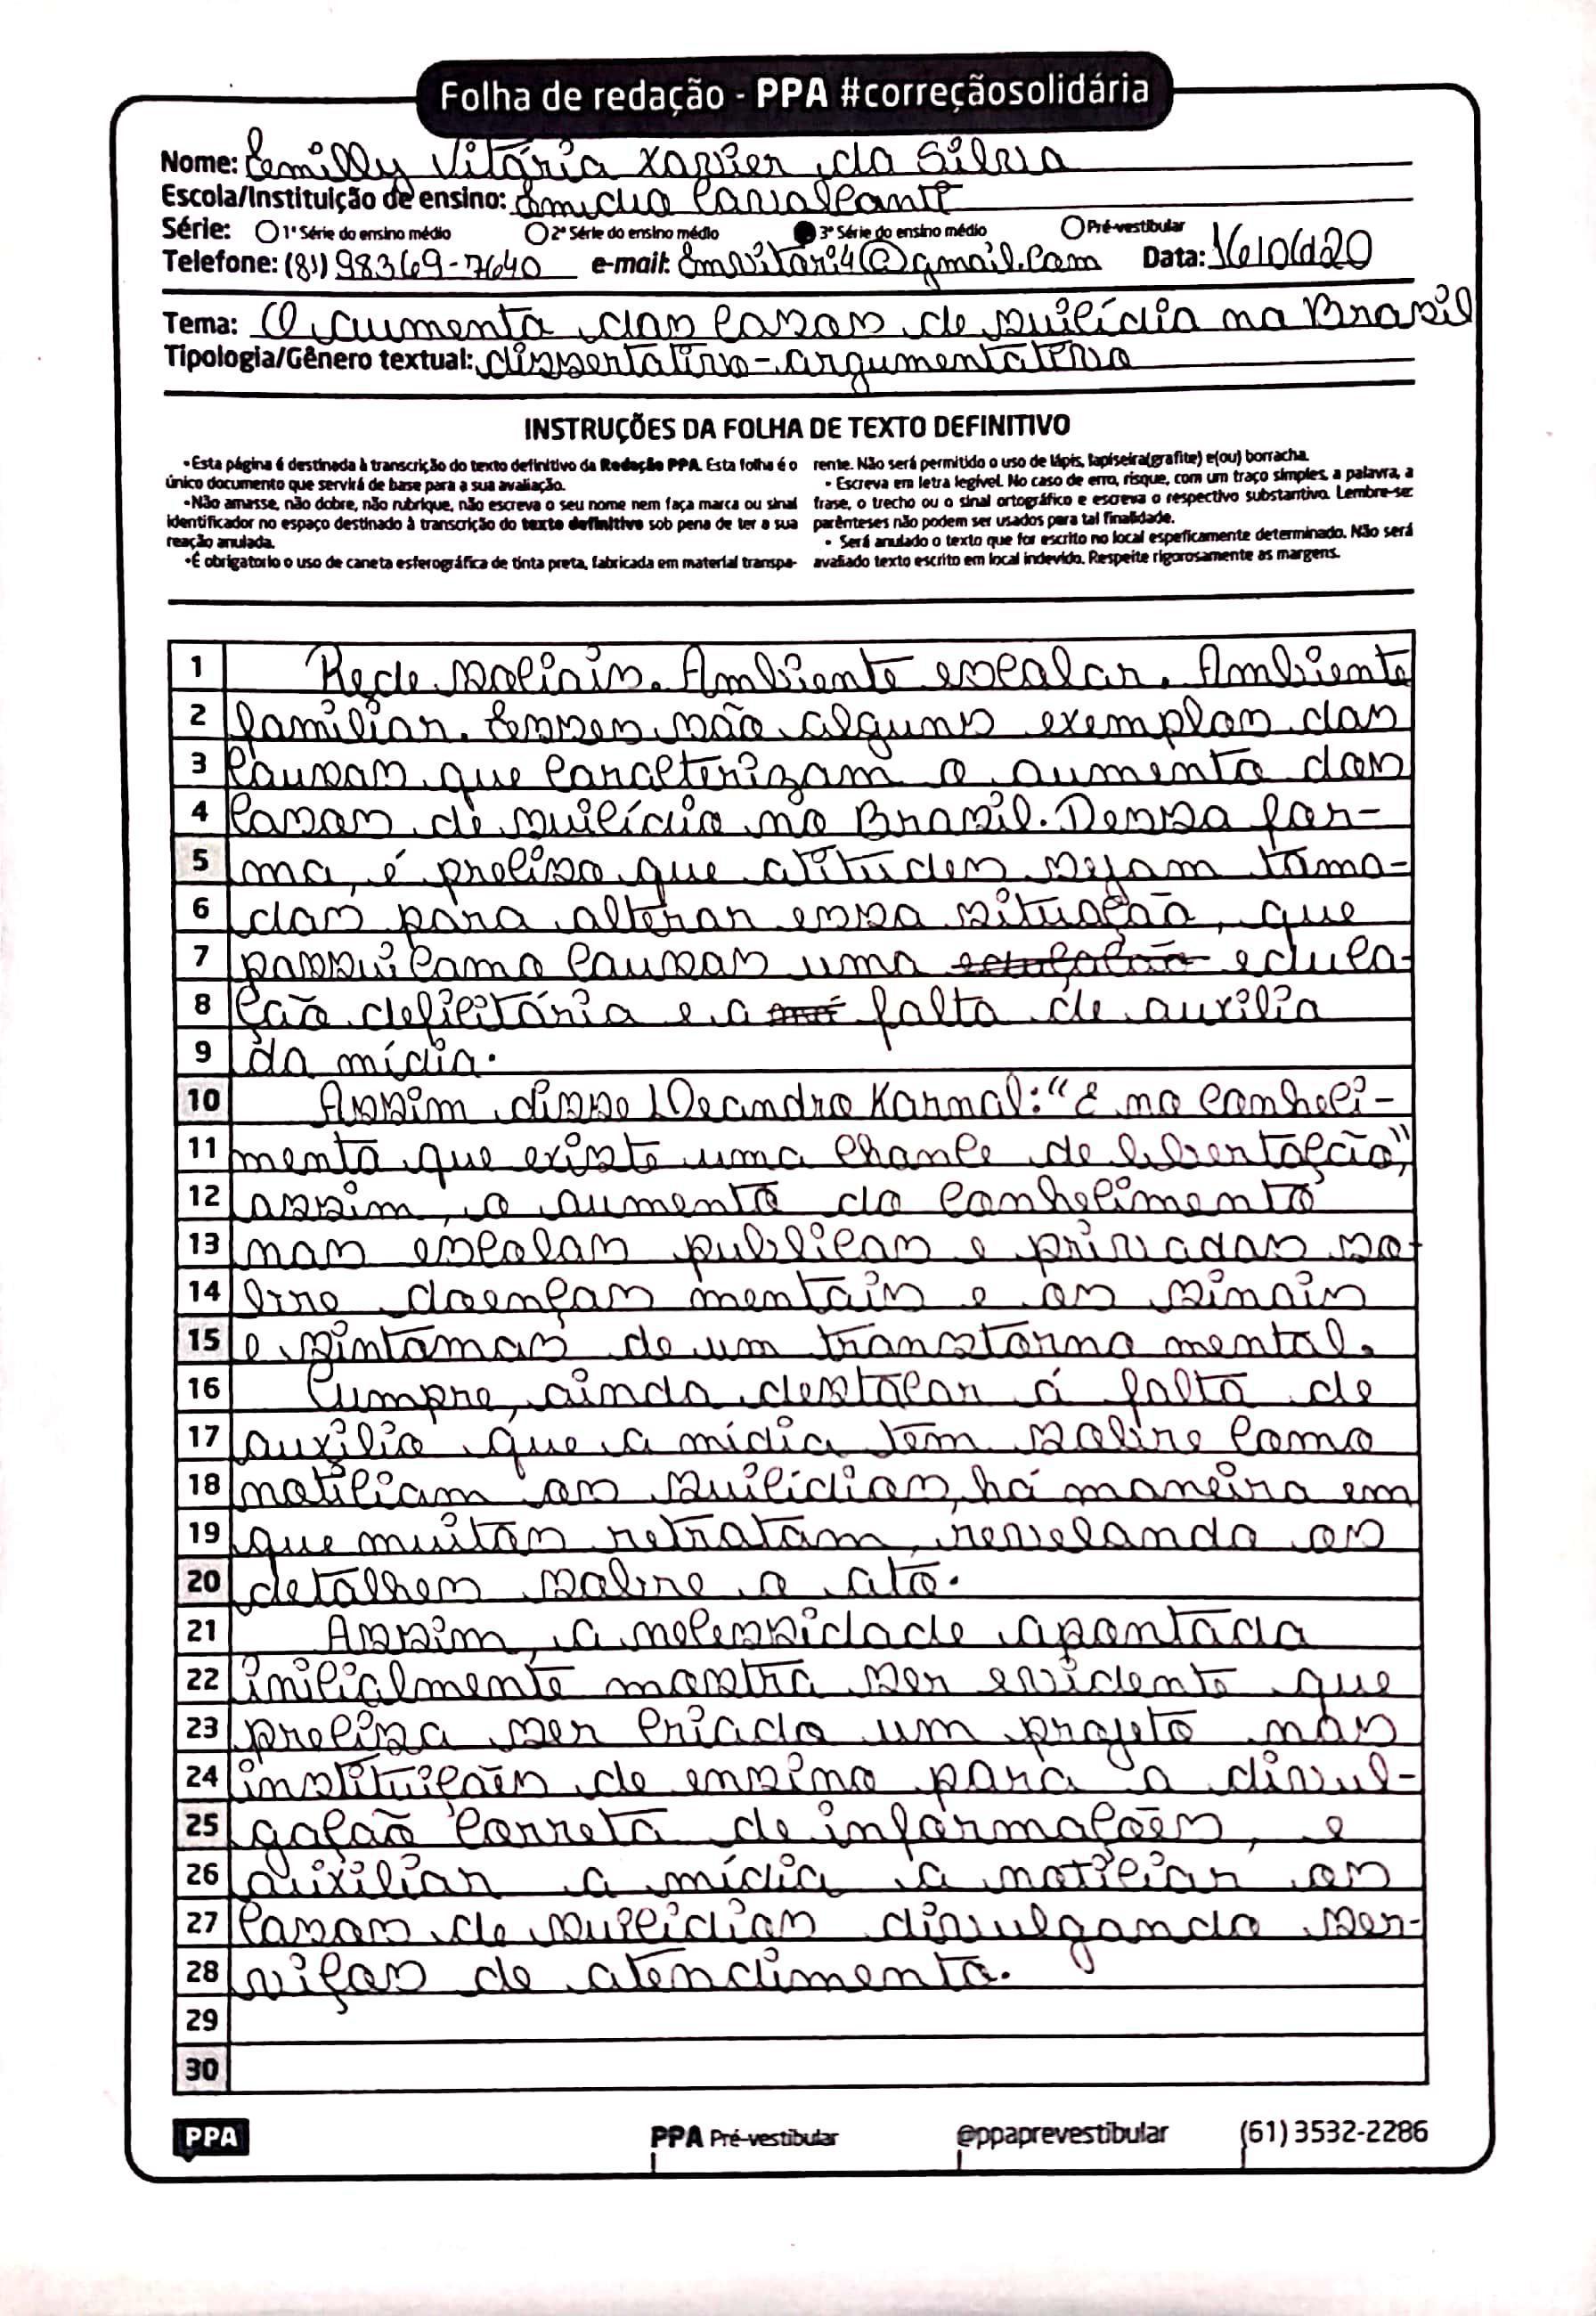 Folha de redação - PPA #correçãosolidária
Nome: Emilly Vitória Xavier da Silva
Escola/Instituição de ensino: Emídio Cavalcante
Série: 1ª Série do ensino médio 2ª Série do ensino médio 3ª Série do ensino médio Pré-vestibular
Telefone: (81) 98369-7640 e-mail: Emvitari4@gmail.com Data: 16/06/020
Tema: O aumento dos casos de suicídio no Brasil
Tipologia/Gênero textual: dissertativo-argumentativo
INSTRUÇÕES DA FOLHA DE TEXTO DEFINITIVO
•Esta página é destinada à transcrição do texto definitivo da Redação PPA. Esta folha é o
único documento que servirá de base para a sua avaliação.
•Não amasse, não dobre, não rubrique, não escreva o seu nome nem faça marca ou sinal
identificador no espaço destinado à transcrição do texto definitivo sob pena de ter a sua
reação anulada.
•É obrigatorio o uso de caneta esferográfica de tinta preta, fabricada em material transpa-
rente. Não será permitido o uso de lápis, lapiseira(grafite) e(ou) borracha.
• Escreva em letra legível. No caso de erro, risque, com um traço simples, a palavra, a
frase, o trecho ou o sinal ortográfico e escreva o respectivo substantivo. Lembre-se:
parênteses não podem ser usados para tal finalidade.
• Será anulado o texto que for escrito no local espeficamente determinado. Não será
avaliado texto escrito em local indevido. Respeite rigorosamente as margens.
1 Rede sociais. Ambiente escolar. Ambiente
2 familiar. Esses são alguns exemplos das
3 causas que caracterizam o aumento dos
4 casos de suicídio no Brasil. Dessa for-
5 ma, é preciso que atitudes sejam toma-
6 das para alterar essa situação, que
7 possui como causas uma educa-
8 ção deficitária e a falta de auxilio
9 da mídia.
10 Assim disse Leandro Karnal: "É no conheci-
11 mento que existe uma chance de libertação",
12 assim, o aumento do conhecimento
13 nas escolas publicas e privadas so-
14 bre doenças mentais e os sinais
15 e sintomas de um transtorno mental.
16 Cumpre, ainda destacar á falta de
17 auxilio que a mídia tem sobre como
18 noticiam os suicídios, há maneira em
19 que muitos retratam, revelando os
20 detalhes sobre o ato.
21 Assim, a necessidade apontada
22 inicialmente mostra ser evidente que
23 precisa ser criado um projeto nas
24 instituiçoẽs de ensino para a divul-
25 gação correta de informações, e
26 auxiliar a mídia a noticiar os
27 casos de suicídios divulgando ser-
28 viços de atendimento.
29
30
PPA PPA Pré-vestibular @ppaprevestibular (61) 3532-2286